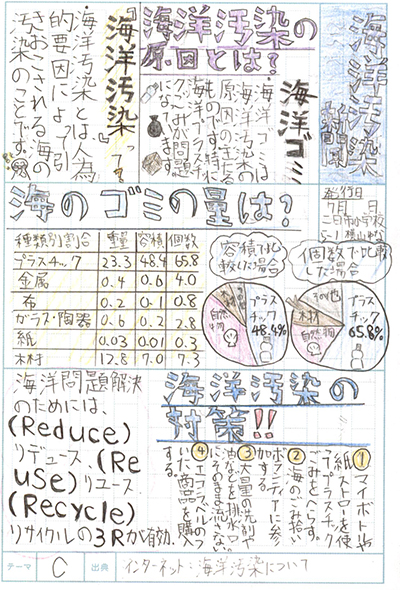 海洋汚染
新聞
発行日
7月 日
二日市小学校
5-1
海洋汚染の
原因とは?
海洋ゴミ
海洋ゴミは
海洋汚染の
原因の主たる
ものです。特に
海洋プラスチッ
クごみが問題
になってい
ます。
『海洋汚染』って?
海洋汚染とは人為
的要因によって引
きおこされる海の
汚染のことです。
海のゴミの量は?
種類別割合 重量 容積 個数
プラスチック 23.3 48.4 65.8
金属 0.4 0.6 4.0
布 0.2 0.1 0.8
ガラス・陶器 0.6 0.2 2.8
紙 0.03 0.01 0.3
木材 12.8 7.0 7.3
容積で比
較した場合
プラス
チック
48.4%
木材
自然物
個数で比較
した場合
プラス
チック
65.8%
その他
木材
自然物
海洋汚染の
対策!!
①マイボトルや
紙ストローを使
ってプラスチック
ごみをへらす。
②海のごみ拾い
ボランティアに参
加する。
③大量の洗剤や
油などを排水口
にそのまま流さない
④エコラベルのつ
いた商品を購入
する。
海洋問題解決
のためには、
(Reduce)
リデュース、(Re
use)リユース、
(Recycle)
リサイクルの3Rが有効。
テーマ C 出典 インターネット:海洋汚染について